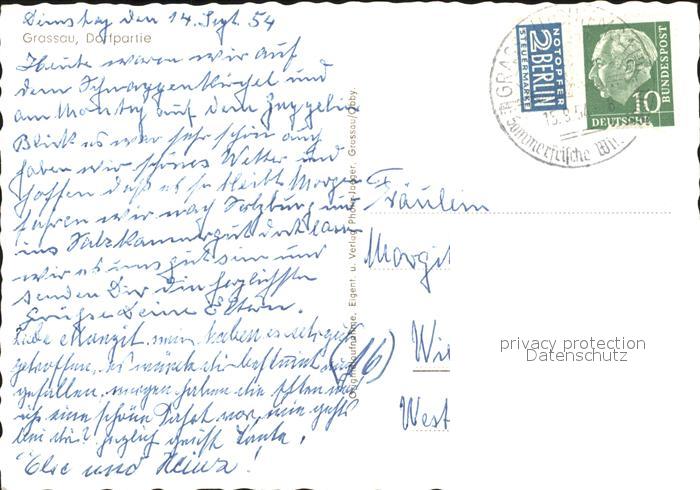 Dienstag den 14. Sept. 54
Grassau, Dorfpartie
Heute waren wir auf
dem Schnappenkirchl und
am Montag auf dem
Blick es war sehr schön auch
haben wir schönes Wetter und
hoffen daß es so bleibt Morgen
fahren wir nach Salzburg und
ins Salzkammergut dort lassen
wir es uns gut sein und
senden Dir die herzlichsten
Grüße Deine Eltern.
Liebe Margit, wir haben es sehr gut
getroffen, es würde dir bestimmt auch
gefallen, morgen haben die Eltern und
ich eine schöne Fahrt vor, wie geht's
bei dir? herzlich grüßt Tante,
Else und Heinz!
Originalaufnahme, Eigent. u. Verlag Photo-Jaeger, Grassau/Obb.
NOTOPFER
2 BERLIN
STEUERMARKE
DEUTSCHE
BUNDESPOST
10
GRASSAU
15.9.54
Sommerfrische
Fräulein
Margit
(16)
Wi
West
privacy protection
Datenschutz